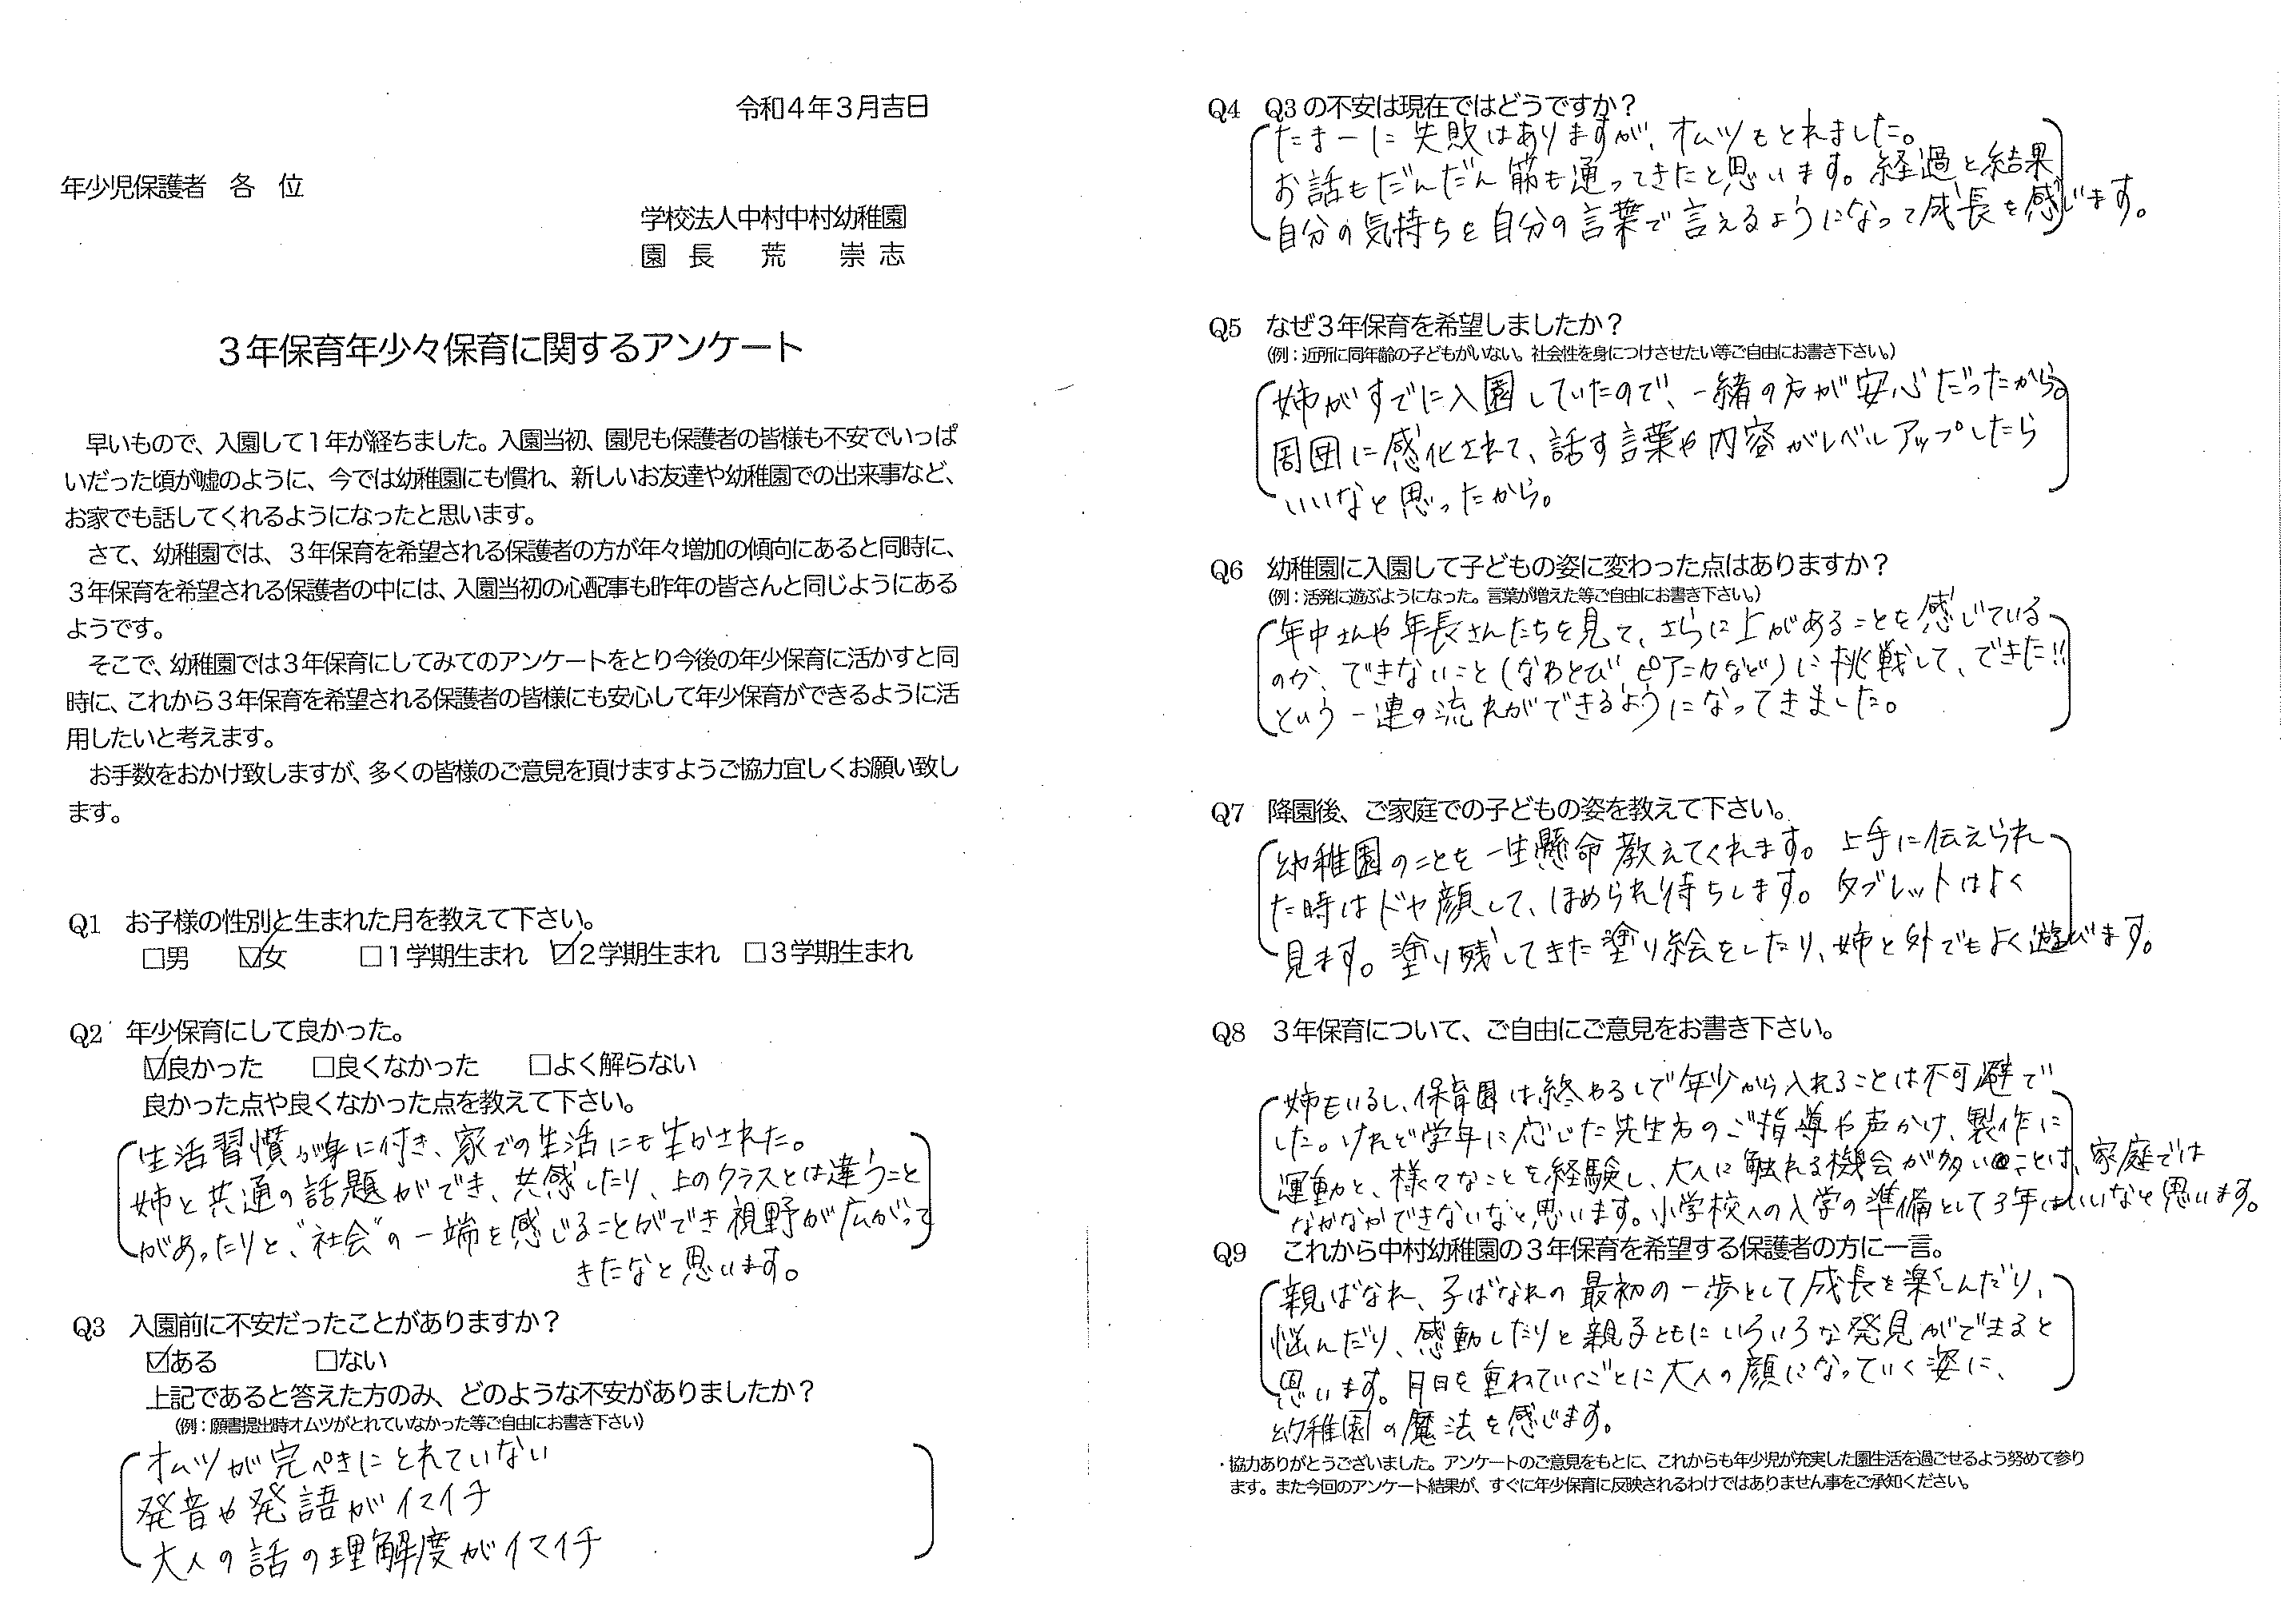 令和４年３月吉日
年少児保護者　各　位
学校法人中村中村幼稚園
園　長　　荒　　崇　志
３年保育年少々保育に関するアンケート
早いもので、入園して１年が経ちました。入園当初、園児も保護者の皆様も不安でいっぱ
いだった頃が嘘のように、今では幼稚園にも慣れ、新しいお友達や幼稚園での出来事など、
お家でも話してくれるようになったと思います。
さて、幼稚園では、３年保育を希望される保護者の方が年々増加の傾向にあると同時に、
３年保育を希望される保護者の中には、入園当初の心配事も昨年の皆さんと同じようにある
ようです。
そこで、幼稚園では３年保育にしてみてのアンケートをとり今後の年少保育に活かすと同
時に、これから３年保育を希望される保護者の皆様にも安心して年少保育ができるように活
用したいと考えます。
お手数をおかけ致しますが、多くの皆様のご意見を頂けますようご協力宜しくお願い致し
ます。
Q1　お子様の性別と生まれた月を教えて下さい。
□男　☑女　□１学期生まれ　☑２学期生まれ　□３学期生まれ
Q2　年少保育にして良かった。
☑良かった　□良くなかった　□よく解らない
良かった点や良くなかった点を教えて下さい。
生活習慣が身に付き、家での生活にも生かされた。
姉と共通の話題ができ、共感したり、上のクラスとは違うこと
があったりと、“社会”の一端を感じることができ視野が広がって
きたなと思います。
Q3　入園前に不安だったことがありますか？
☑ある　□ない
上記であると答えた方のみ、どのような不安がありましたか？
（例：願書提出時オムツがとれていなかった等ご自由にお書き下さい）
オムツが完ぺきにとれていない
発音や発語がイマイチ
大人の話の理解度がイマイチ
Q4　Q3の不安は現在ではどうですか？
たまーに失敗はありますが、オムツもとれました。
お話もだんだん筋も通ってきたと思います。経過と結果
自分の気持ちを自分の言葉で言えるようになって成長を感じます。
Q5　なぜ３年保育を希望しましたか？
（例：近所に同年齢の子どもがいない。社会性を身につけさせたい等ご自由にお書き下さい。）
姉がすでに入園していたので、一緒の方が安心だったから。
周囲に感化されて、話す言葉や内容がレベルアップしたら
いいなと思ったから。
Q6　幼稚園に入園して子どもの姿に変わった点はありますか？
（例：活発に遊ぶようになった。言葉が増えた等ご自由にお書き下さい。）
年中さんや年長さんたちを見て、さらに上があることを感じている
のか、できないこと（なわとび ピアニカなど）に挑戦して、できた!!
という一連の流れができるようになってきました。
Q7　降園後、ご家庭での子どもの姿を教えて下さい。
幼稚園のことを一生懸命教えてくれます。上手に伝えられ
た時はドヤ顔して、ほめられ待ちします。タブレットはよく
見ます。塗り残してきた塗り絵をしたり、姉と外でもよく遊びます。
Q8　３年保育について、ご自由にご意見をお書き下さい。
姉もいるし、保育園は終わるしで年少から入れることは不可避で
した。けれど学年に応じた先生方のご指導や声かけ、製作に
運動と、様々なことを経験し、大人に触れる機会が多いことは、家庭では
なかなかできないなと思います。小学校への入学の準備として３年はいいなと思います。
Q9　これから中村幼稚園の３年保育を希望する保護者の方に一言。
親ばなれ、子ばなれの最初の一歩として成長を楽しんだり、
悩んだり、感動したりと親子ともにいろいろな発見ができると
思います。月日を重ねていくごとに大人の顔になっていく姿に、
幼稚園の魔法を感じます。
・協力ありがとうございました。アンケートのご意見をもとに、これからも年少児が充実した園生活を過ごせるよう努めて参り
ます。また今回のアンケート結果が、すぐに年少保育に反映されるわけではありません事をご承知ください。